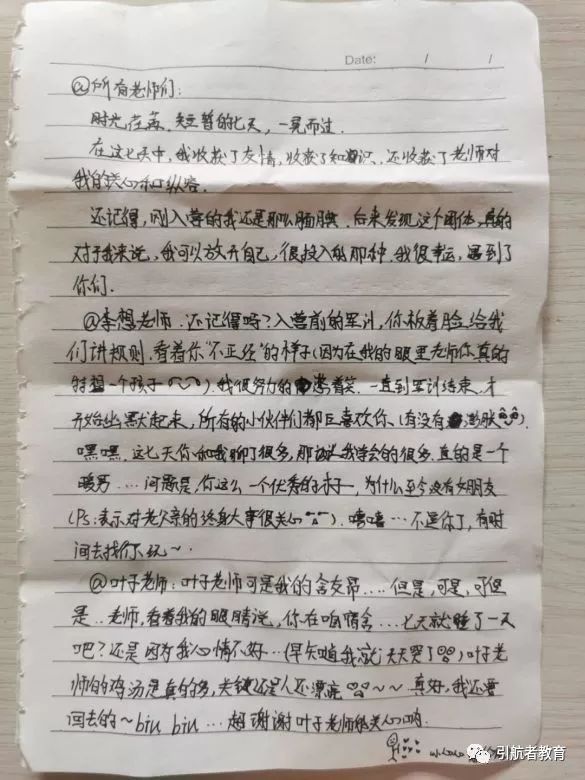 Date: / /
@所有老师们:
时光荏苒,短暂的七天,一晃而过.
在这七天中,我收获了友情,收获了知识,还收获了老师对
我的关心和纵容.
还记得,刚入营的我还是那么腼腆.后来发现这个团体,真的
对于我来说,我可以放开自己,很投入的那种.我很幸运,遇到了
你们.
@李想老师.还记得吗?入营前的军训,你板着脸给我
们讲规则.看着你"不正经"的样子(因为在我的眼里老师你真的
特想一个孩子).我很努力的憋着笑.一直到军训结束.才
开始幽默起来,所有的小伙伴们都巨喜欢你.(有没有膨胀).
嘿嘿.这七天你和我聊了很多,那让我学会的很多.真的是一个
暖男....问题是,你这么一个优秀的李,为什么至今没有女朋友
(Ps:表示对老父亲的终身大事很关心).嘻嘻...不逗你了,有时
间去找你玩~
@叶子老师:叶子老师可是我的舍友昂....但是,可是,可但
是..老师,看着我的眼睛说,你在咱宿舍...七天就睡了一天
吧?还是因为我心情不好...(早知道我就天天哭了)叶子老
师的鸡汤是真的多,关键还是人还漂亮~~真好,我还会
回去的~biu biu...超谢谢叶子老师的关心哟.
引航者教育